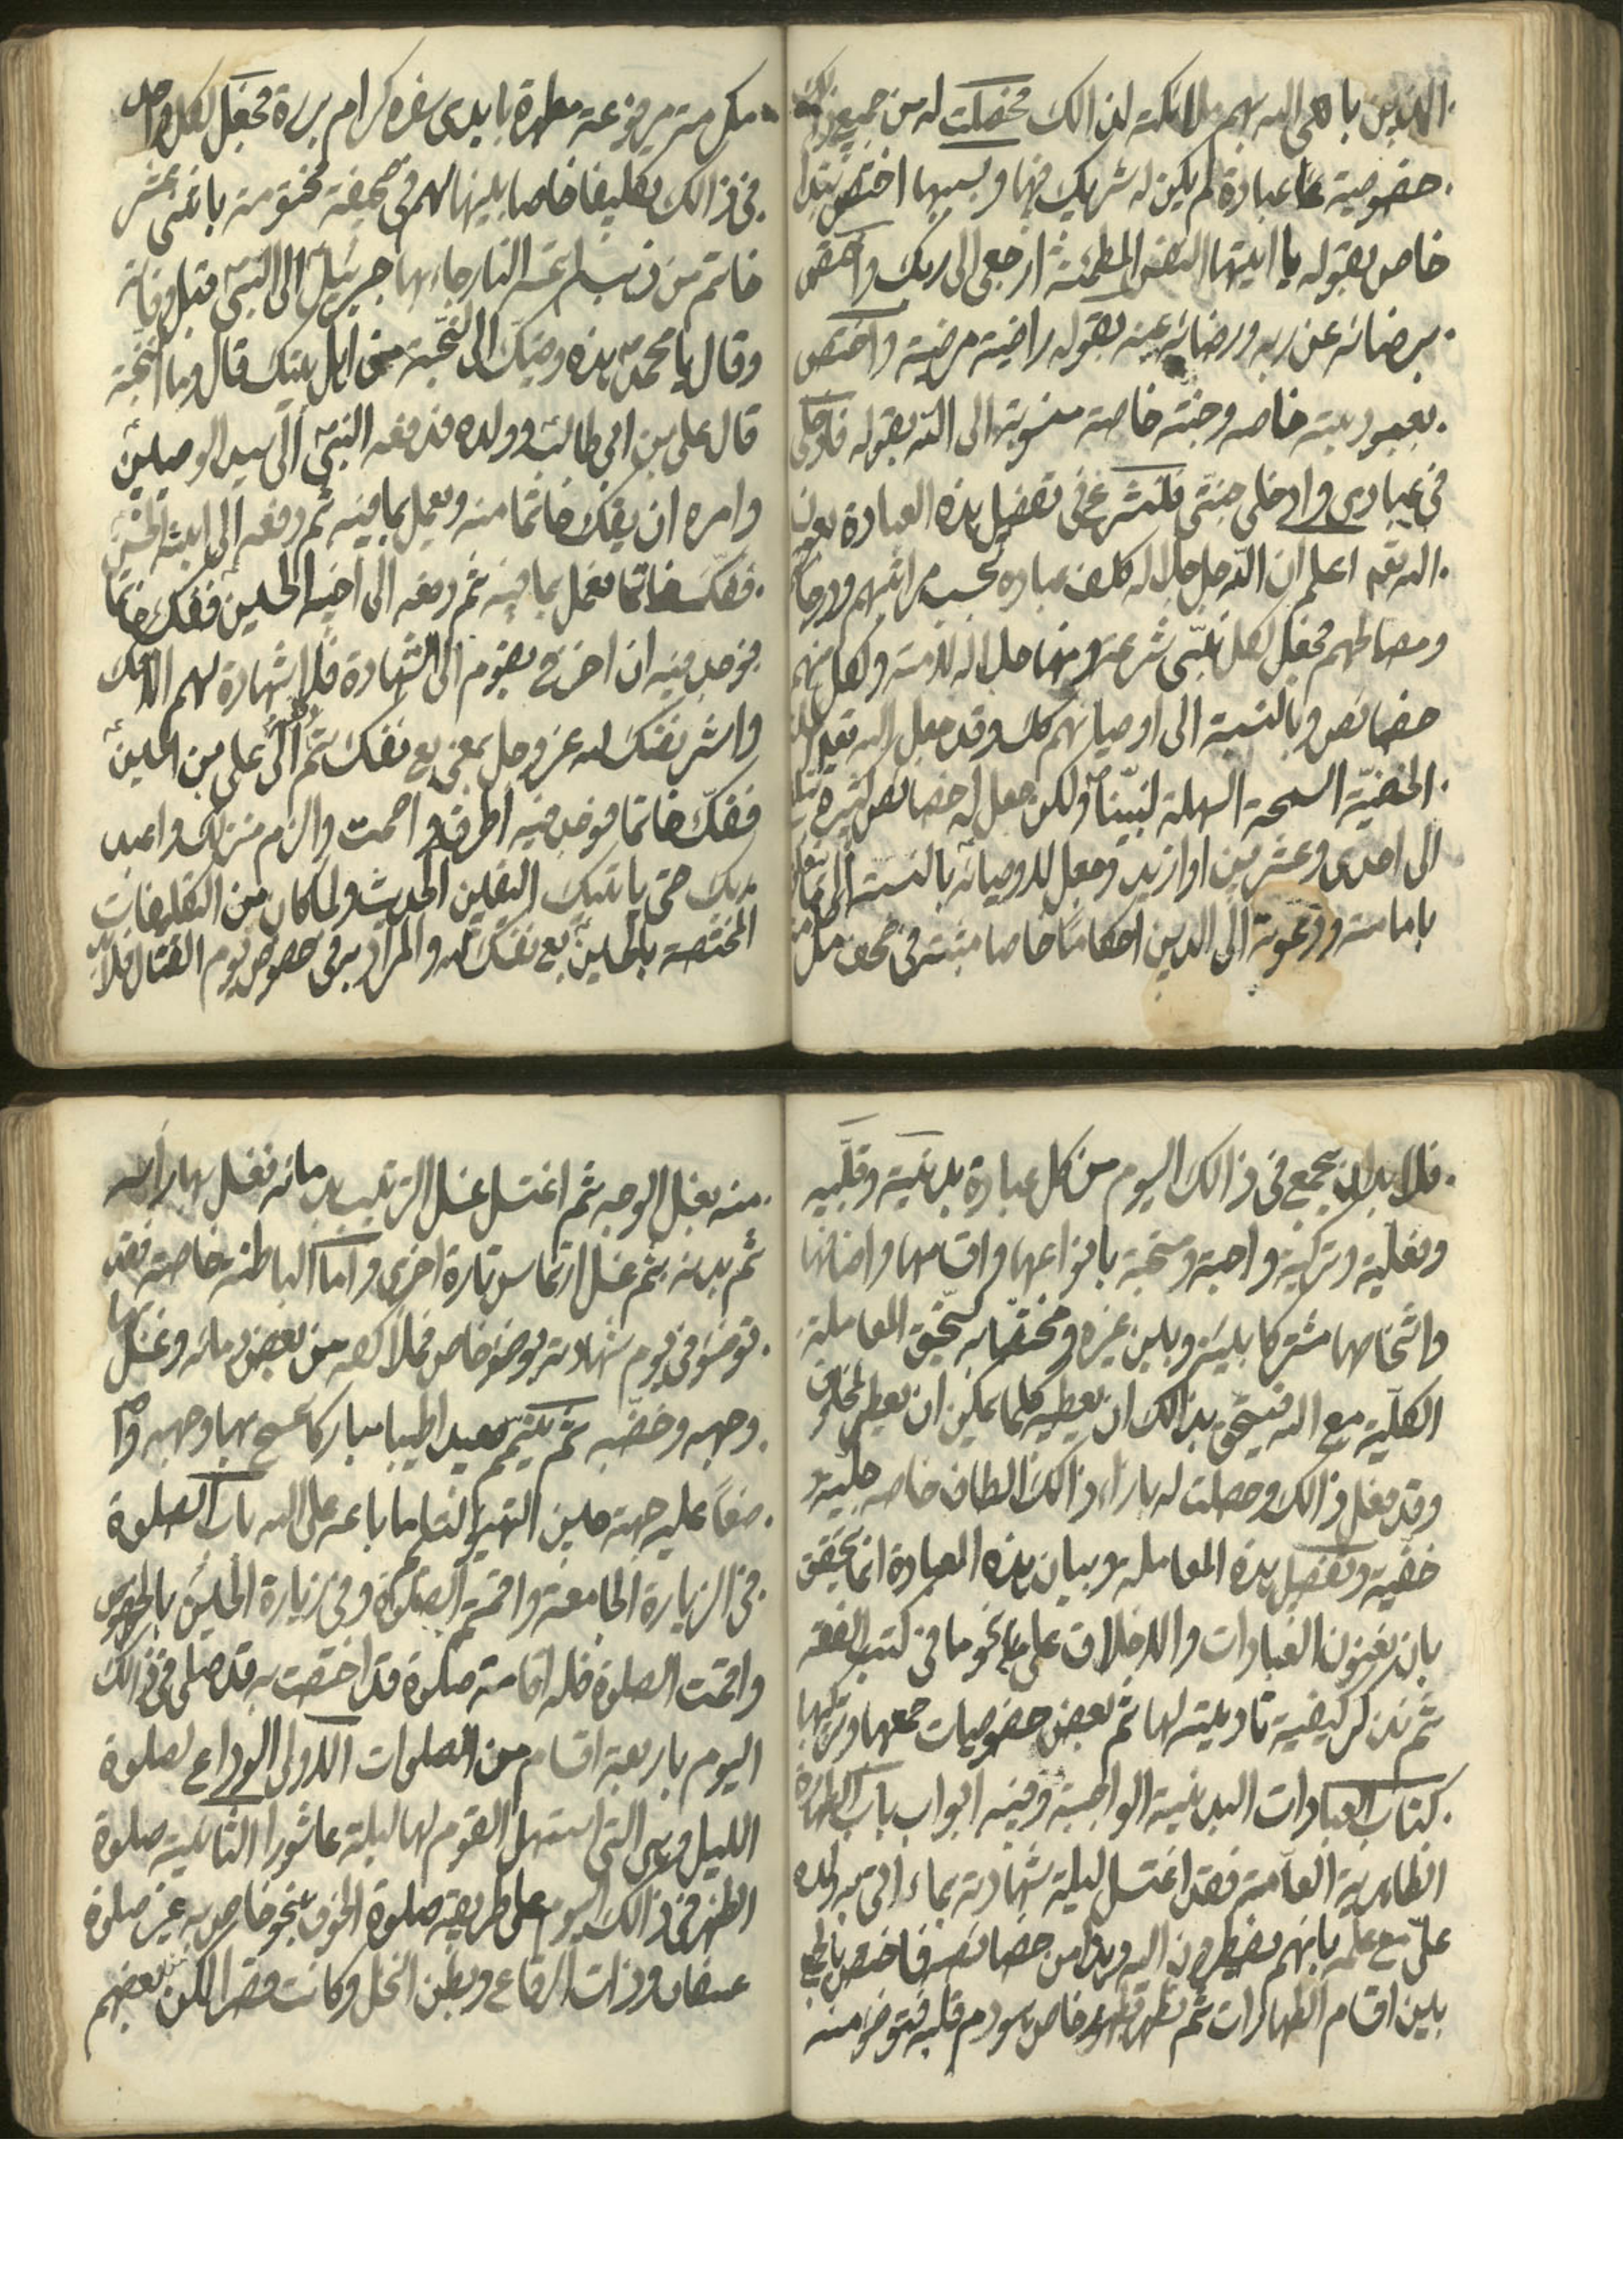 الذين باهى الله بهم ملائكته لذالك فحصلت له من جميع ذلك
خصوصية عبادة لم يكن له شريك فيها وبسببها اختص بنداء
خاص بقوله يا ايتها النفس المطمئنة ارجعى الى ربك واختص
برضائه عن ربه ورضائه عنه بقوله راضية مرضية واختص
بعبودية خاصه وجنة خاصة منسوبة الى الله بقوله فادخلى
فى عبادى وادخلى جنتى فلنشرع فى تفصيل هذه العبادة بعون
الله نعم اعلم ان الله جل جلاله كلف عباده بحسب مراتبهم ودرجا
ومصالحهم فجعل لكل نبى شرعة ومنهاجا لاله للامته ولكل منهم
خصائص وبالنسبة الى اوصيائهم كك وقد جعل الله تعالى
الحنفية السمحة السهلة لنبينا ولكن جعل له خصائص كثيرة
الى احدى وعشرين او ازيد وجعل للاوصيائه بالنسبة الى
بامامته ودعوته الى الدين احكاما خاصا مثبتة فى صحف
مكرمة مرفوعة مطهرة بايدى سفرة كرام بررة فجعل لكل واحد
فى ذالك تكليفا خاصا بينها لهم فى صحيفة مختومة باثنى عشر
خاتم من ذهب لم تمسه النار جاء بها جبرئيل الى النبى قبل وفاته
وقال يا محمد هذه وصيتك الى النجبة من اهل بيتك قال وما النجبة
قال على بن ابى طالب وولده فدفعه النبى الى سيد الوصيين
وامره ان يفك خاتما منه ويعمل بما فيه ثم دفعه الى ابنه الحسن
ففك خاتما فعمل بما فيه ثم دفعه الى اخيه الحسين ففك خاتما
فوجد فيه ان اخرج بقوم الى الشهادة فلا شهادة لهم الا معك
واشر نفسك لله عز وجل بمعنى بع نفسك ثم دفعه الى على بن الحسين
ففك خاتما فوجد فيه اطرق واصمت والزم منزلك واعبد
ربك حتى ياتيك اليقين الحديث ولما كان من التكليفات
المختصة بالحسين بع نفسك لله والمراد به فى خصوص يوم القتال فلا
فلا بد ان يجمع فى ذالك اليوم من كل عبادة بدنية وقلبيه
وفعلية وتركية واجبة ومستحبة بانواعها واقسامها واصنافها
واشخاصها مشتركا بينه وبين غيره ومختصا به ليتحقق المعاملة
الكلية مع الله فيستحق بذالك ان يعطيه كلما يمكن ان يعطى المخلوق
وقد فعل ذالك وحصلت له بازاء ذالك الطاف خاصه جلية
خفية وتفصيل هذه المعامله وبيان هذه العبادة انما يتحقق
بان نعنون العبادات والاخلاق على نحو ما فى كتب الفقه
ثم نذكر كيفية تاديته لها ثم بعض خصوصيات جمعها وتركيبها
كتاب العبادات البدنية الواجبة وفيه ابواب باب الطهارة
الظاهرية العامة فقد اغتسل ليلة شهادته بماء اتى به ولده
على مع علمه بانهم مضطرون اليه وهذا من خصائصه فاختص بالجمع
بين اقسام الطهارات ثم تطهر بطهور خاص هو دم قلبه فتوضؤ منه
منه بغسل الوجه ثم اغتسل غسل الترتيب بدمائه فغسل بها راسه
ثم بدنه ثم غسل ارتماس تارة اخرى واما الباطنه خاصة فقد
توضؤ فى يوم شهادته بوضؤ خاص فملا كفه من بعض دمائه وغسل بها
وجهه وخضبه ثم تيمم صعيدا طيبا مباركا مسح بها وجهه
صفا عليه جبهة حين التهيؤ لتسليم ما باعه على الله باب الصلوة
فى الزيارة الجامعة واقمتم الصلوة وفى زيارة الحسين بالخصوص
واقمت الصلوة فله اقامة صلوة قد اختصت به قد صلى فى ذالك
اليوم باربعة اقسام من الصلوات الاولى الوداع لصلوة
الليل وهى التى استمهل القوم لها ليلة عاشورا الثانية صلوة
الظهر فى ذالك اليوم على طريقة صلوة الخوف بنحو خاص به غير صلوة
عسفان وذات الرقاع وبطن النخل وكانت قصرا لكن بعضهم